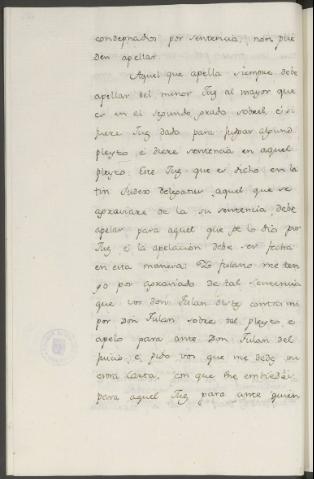 condepnados por sentencia, non pue
den apellar.
Aquel que apella siempre debe
apellar del menor Juz al mayor que
es en el segundo grado sobrél, é si
fuere Juz dado para judgar algund
pleyto, é diere sentencia en aquel
pleyto. Este Juz que es dicho en la
tin Judex delegatus, aquel que se
agraviare de la su sentencia, debe
apelar para aquel que se lo dió por
Juz, é la apelación debe ser fecha
en esta manera: Yo fulano me ten
go por agraviado de tal sentencia
que vos don Fulan disteis contra mi
por Don Fulan sobre tal pleyto, e
apelo para ante Don Fulan del
juicio, é pido vos que me dedes
vuestra Carta, con que me embiedes
para aquel Juz para ante quien